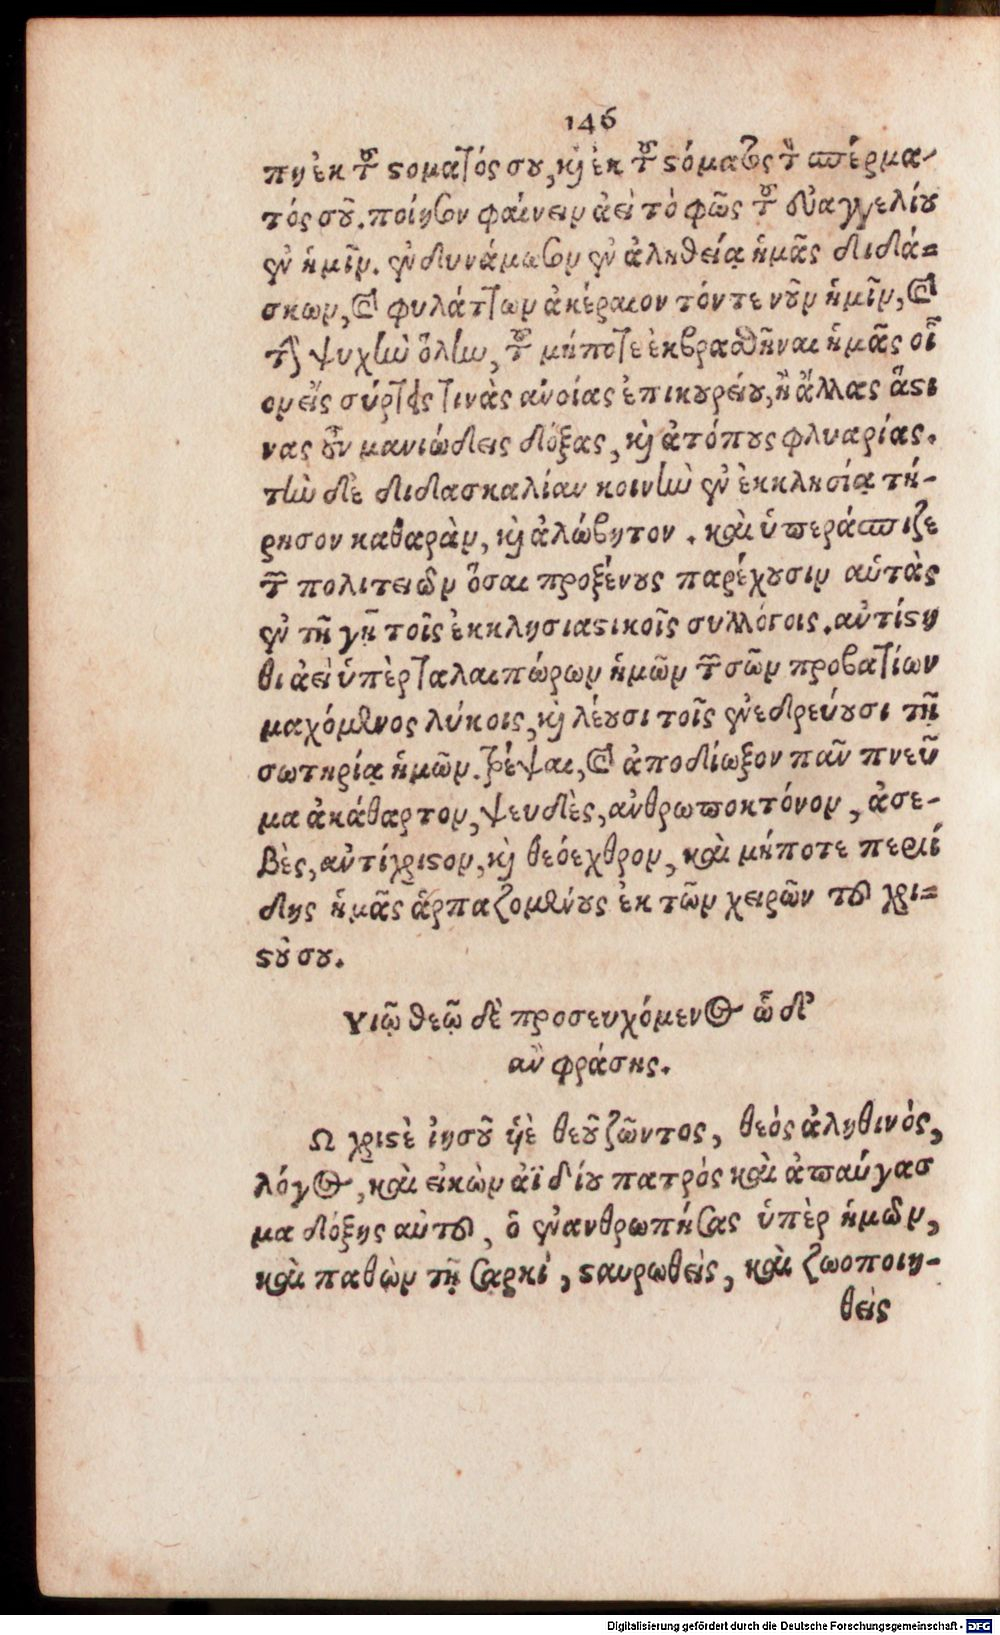 146
πῃ ἐκ τοῦ στοματός σου, καὶ ἐκ τοῦ στόματος τοῦ σπέρμα-
τός σοῦ. ποίησον φαίνειν ἀεὶ τὸ φῶς τοῦ εὐαγγελίου
ἐν ἡμῖν. ἐνδυνάμωσον ἐν ἀληθείᾳ ἡμᾶς διδά=
σκων, καὶ φυλάττων ἀκέραιον τόν τε νοῦν ἡμῖν, καὶ
τὴν ψυχὴν ὅλην, τοῦ μήποτε ἐκβρασθῆναι ἡμᾶς οἷ
ον εἰς σύρτεις τινὰς ἀνοίας ἐπικουρείου, ἢ ἄλλας ἅστι
νας οὖν μανιώδεις δόξας, καὶ ἀτόπους φλυαρίας.
τὴν δὲ διδασκαλίαν κοινὴν ἐν ἐκκλησίᾳ τή-
ρησον καθαρὰν, καὶ ἀλώβητον. καὶ ὑπεράσπιζε
τῶν πολιτειῶν ὅσαι προξένους παρέχουσιν αὐτὰς
ἐν τῇ γῇ τοῖς ἐκκλησιαστικοῖς συλλόγοις. ἀντίστη
θι ἀεὶ ὑπὲρ ταλαιπώρων ἡμῶν τῶν σῶν προβατίων
μαχόμενος λύκοις, καὶ λέουσι τοῖς ἐνεδρεύουσι τῇ
σωτηρίᾳ ἡμῶν. τρέψαι, καὶ ἀποδίωξον πᾶν πνεῦ
μα ἀκάθαρτον, ψευδὲς, ἀνθρωποκτόνον, ἀσε-
βὲς, ἀντίχριστον, καὶ θεόεχθρον, καὶ μήποτε περιί
δῃς ἡμᾶς ἁρπαζομένους ἐκ τῶν χειρῶν τοῦ χρι=
στοῦ σου.
Υἱῷ θεῷ δὲ προσευχόμενος ὧδ'
ἂν φράσῃς.
Ω χριστὲ ἰησοῦ υἱὲ θεοῦ ζῶντος, θεός ἀληθινός,
λόγος, καὶ εἰκὼν ἀϊδίου πατρός καὶ ἀπαύγασ
μα δόξης αὐτοῦ, ὁ ἐνανθρωπήσας ὑπὲρ ἡμῶν,
καὶ παθὼν τῇ σαρκί, σταυρωθείς, καὶ ζωοποιη-
θείς
Digitalisierung gefördert durch die Deutsche Forschungsgemeinschaft - DFG